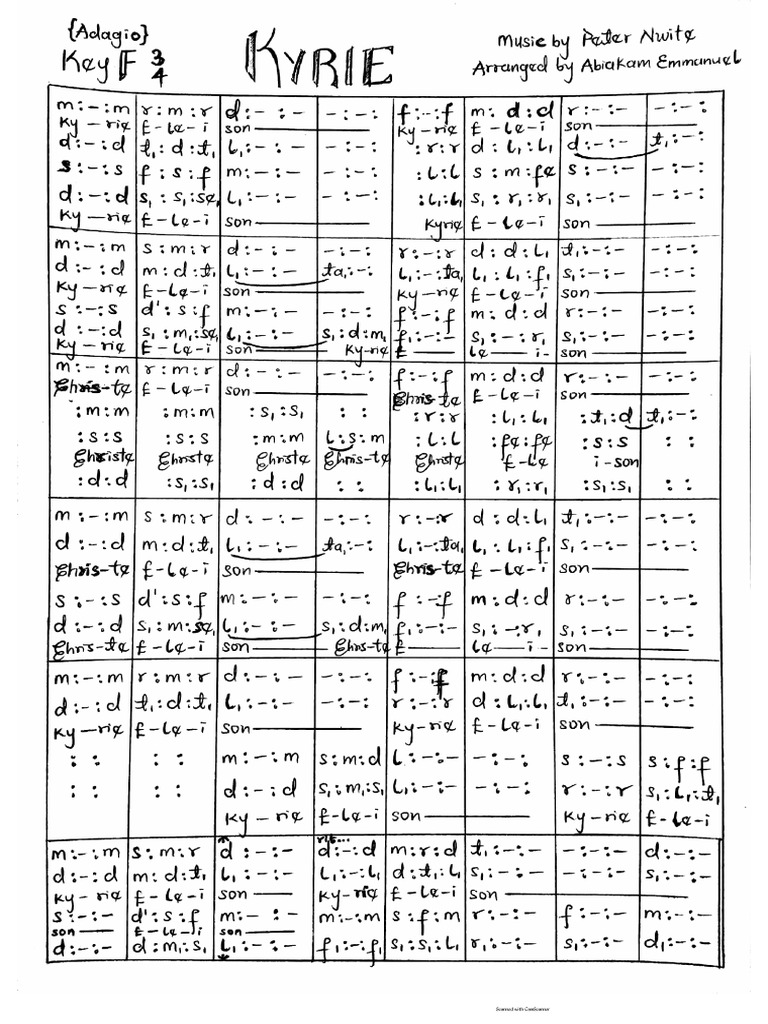 {Adagio}
Key F 3/4
KYRIE
Music by Peter Nwite
Arranged by Abiakam Emmanuel
m:-:m | r:m:r | d:-:- | -:-: | f:-:f | m:d:d | r:-:- | -:-:
Ky-rie E-le-i son Ky-rie E-le-i son
d:-:d | t₁:d:t₁ | l₁:-:- | -:-: | :r:r | d:l₁:l₁ | d:-:- | t₁:-:-
s:-:s | f:s:f | m:-:- | -:-: | :l:l | s:m:fe | s:-:- | -:-:
d:-:d | s₁:s₁:se₁ | l₁:-:- | -:-: | :l₁:l₁ | s₁:r₁:r₁ | s₁:-:- | -:-:
Ky-rie E-le-i son Kyrie E-le-i son
m:-:m | s:m:r | d:-:- | -:-: | r:-:r | d:d:l₁ | t₁:-:- | -:-:
d:-:d | m:d:t₁ | l₁:-:- | ta₁:-: | l₁:-:ta₁ | l₁:l₁:f₁ | s₁:-:- | -:-:
Ky-rie E-le-i son Ky-rie E-le-i son
s:-:s | d':s:f | m:-:- | -:-: | f:-:f | m:d:d | r:-:- | -:-:
d:-:d | s₁:m₁:se₁ | l₁:-:- | s₁:d:m₁ | f₁:-:- | s₁:-:r₁ | s₁:-:- | -:-:
Ky-rie E-le-i son Ky-rie E le i- son
m:-:m | r:m:r | d:-:- | -:-: | f:-:f | m:d:d | r:-:- | -:-:
Chris-te E-le-i son Chris te E-le-i son
:m:m | :m:m | :s₁:s₁ | : : | :r:r | :l₁:l₁ | :t₁:d | t₁:-:
:s:s | :s:s | :m:m | l:s:m | :l:l | :fe:fe | :s:s | : :
Christe Christe Christe Chris-te Christe E-le i-son
:d:d | :s₁:s₁ | :d:d | : : | :l₁:l₁ | :r₁:r₁ | :s₁:s₁ | : :
m:-:m | s:m:r | d:-:- | -:-: | r:-:r | d:d:l₁ | t₁:-:- | -:-:
d:-:d | m:d:t₁ | l₁:-:- | ta₁:-: | l₁:-:ta₁ | l₁:l₁:f₁ | s₁:-:- | -:-:
Chris-te E-le-i son Chris-te E-le-i son
s:-:s | d':s:f | m:-:- | -:-: | f:-:f | m:d:d | r:-:- | -:-:
d:-:d | s₁:m:se₁ | l₁:-:- | s₁:d:m₁ | f₁:-:- | s₁:-:r₁ | s₁:-:- | -:-:
Chris-te E-le-i son Chris-te E le-i- son
m:-:m | r:m:r | d:-:- | -:-: | f:-:f | m:d:d | r:-:- | -:-:
d:-:d | t₁:d:t₁ | l₁:-:- | -:-: | r:-:r | d:l₁:l₁ | t₁:-:- | -:-:
Ky-rie E-le-i son Ky-rie E-le-i son
: : | : : | m:-:m | s:m:d | l:-:- | -:-: | s:-:s | s:f:f
: : | : : | d:-:d | s₁:m₁:s₁ | l₁:-:- | -:-: | r:-:r | s₁:l₁:t₁
Ky-rie E-le-i son Ky-rie E-le-i
rit...
m:-:m | s:m:r | d:-:- | d:-:d | m:r:d | t₁:-:- | -:-:- | d:-:-
d:-:d | m:d:t₁ | l₁:-:- | l₁:-:l₁ | d:t₁:l₁ | s₁:-:- | -:-:- | s₁:-:-
Ky-rie E-le-i son Ky-rie E-le-i son
s:-:- | d':s:f | m:-:- | m:-:m | s:f:m | r:-:- | f:-:- | m:-:-
son E-le-i
d:-:- | d:m₁:s₁ | l₁:-:- | f₁:-:f₁ | s₁:s₁:l₁ | r₁:-:- | s₁:-:- | d₁:-:-
Scanned with CamScanner